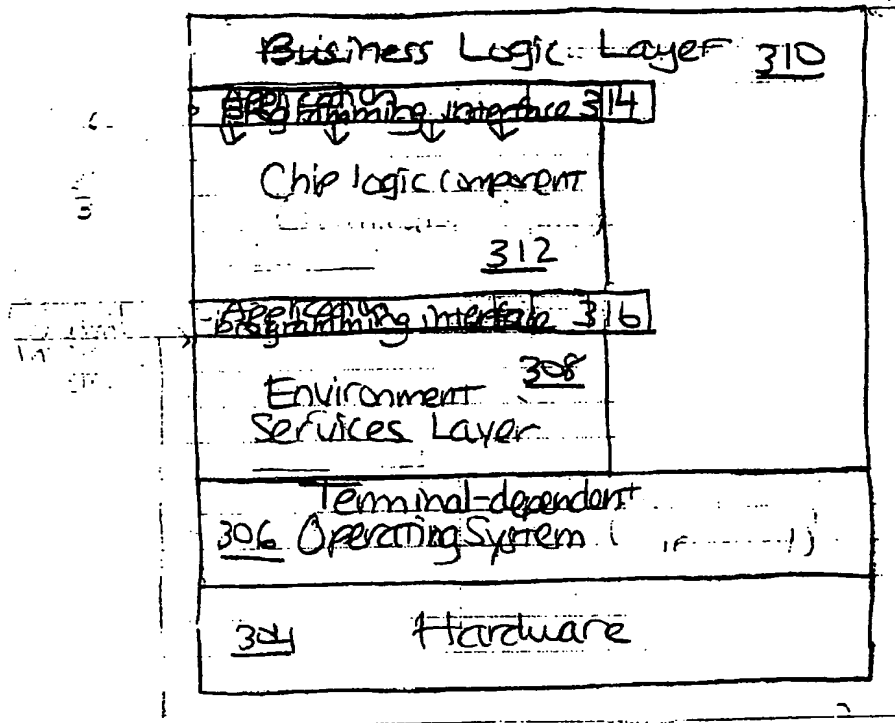 Business Logic Layer 310
Application
Programming interface 314
Chip logic component
312
Application
programming interface 316
308
Environment
Services Layer
Terminal-dependent
306 Operating System
304 Hardware